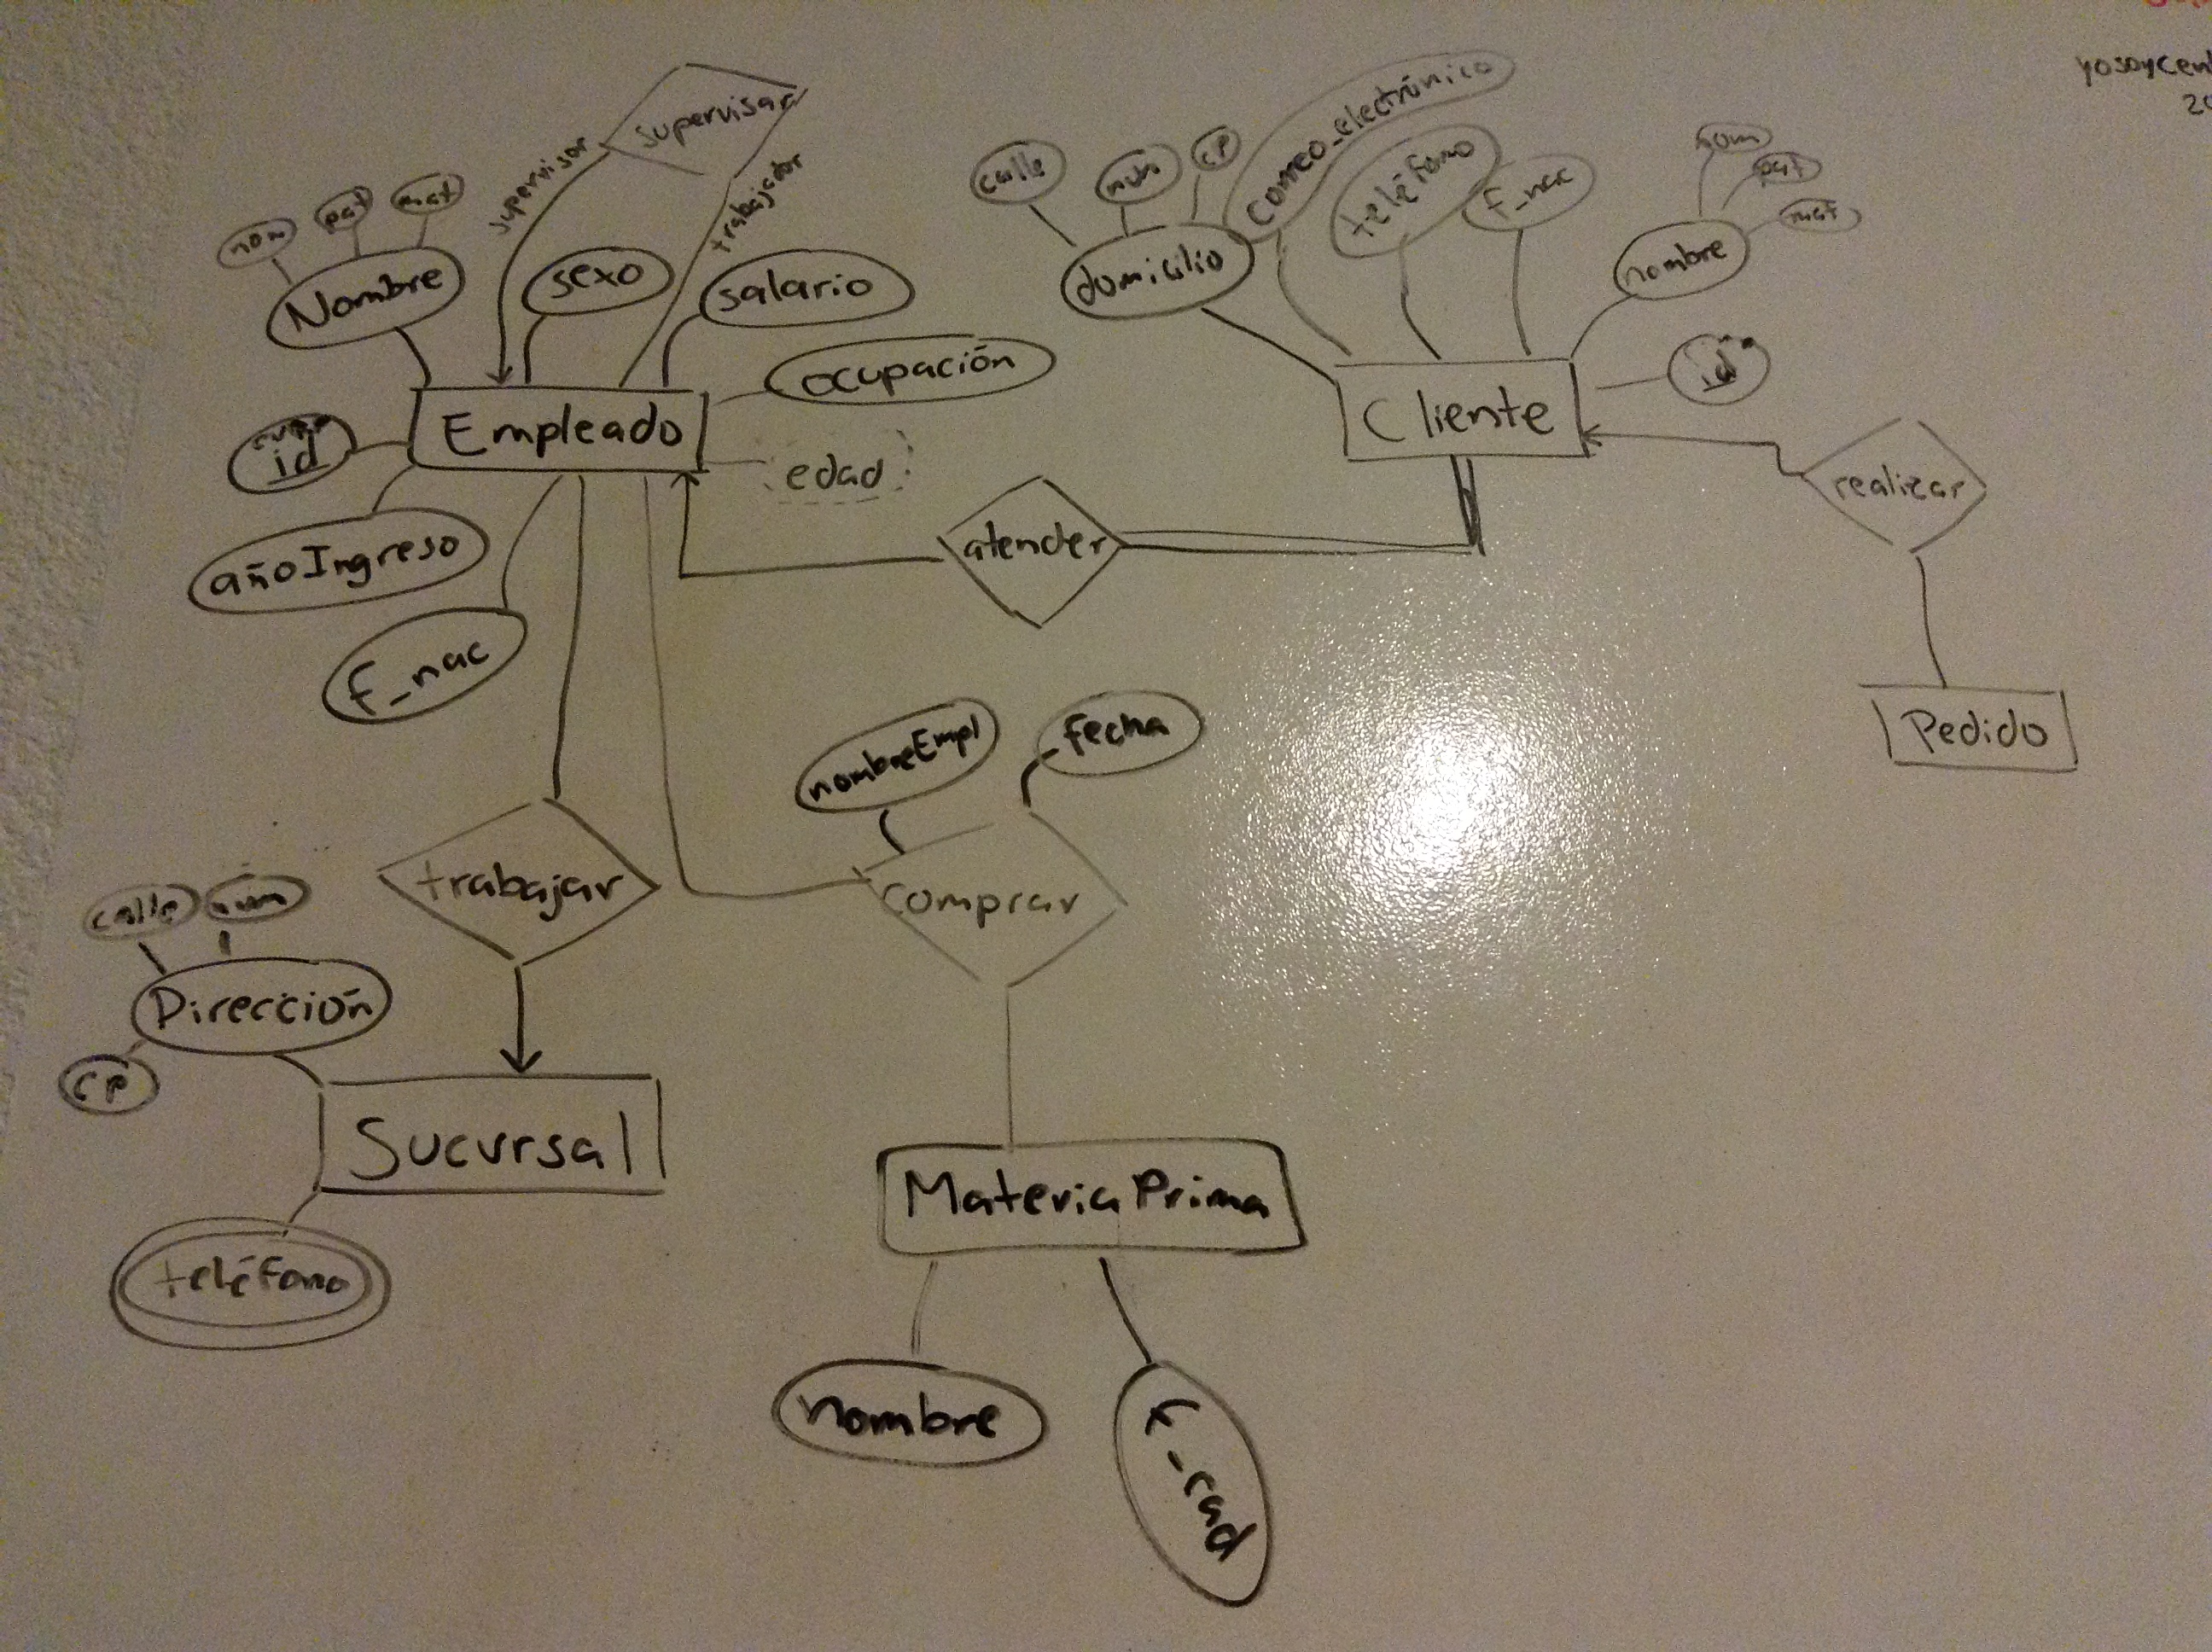 yosoycen
supervisar
supervisor
trabajador
nom
pat
mat
Nombre
sexo
salario
ocupación
Empleado
id
edad
añoIngreso
f_nac
calle
num
cp
correo_electrónico
teléfono
f_nac
domicilio
nom
pat
mat
nombre
id
Cliente
realizar
atender
Pedido
nombreEmpl
fecha
trabajar
comprar
calle
num
Dirección
cp
Sucursal
teléfono
MateriaPrima
nombre
f_cad